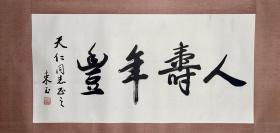 人壽年豐
天仁同志正之
東玉